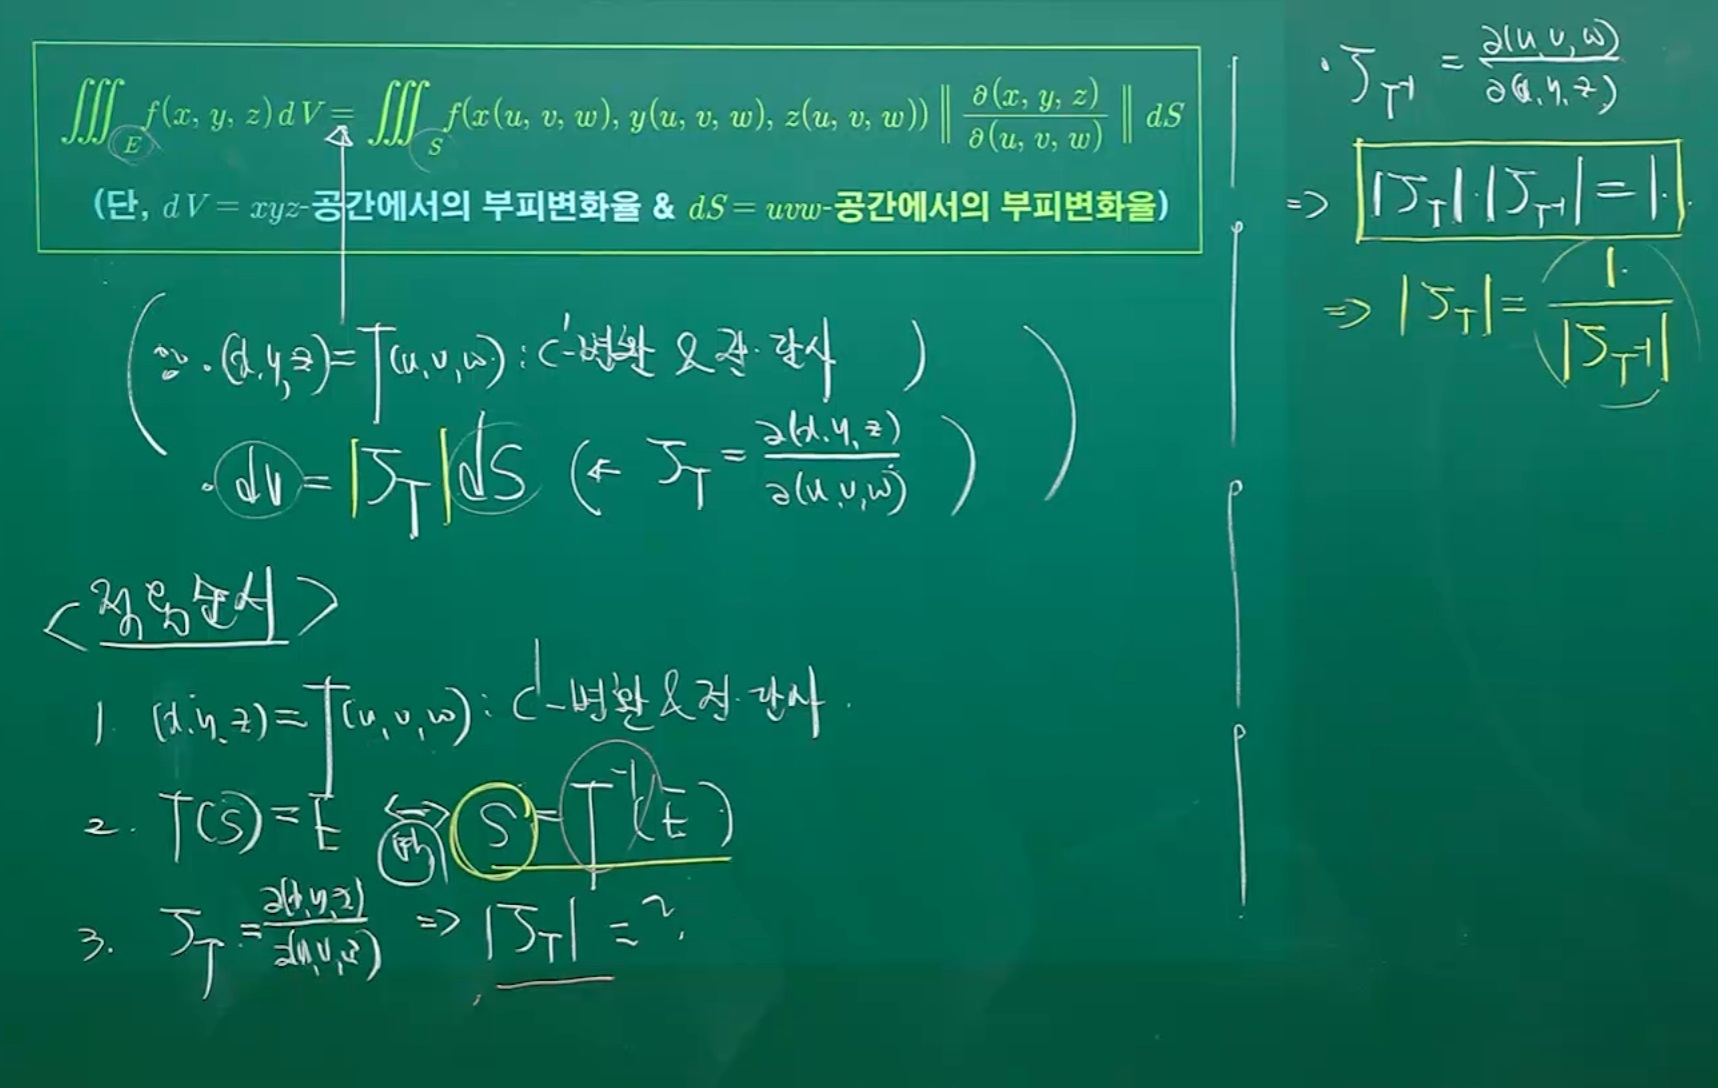 ∭_E f(x, y, z) dV = ∭_S f(x(u, v, w), y(u, v, w), z(u, v, w)) ‖ ∂(x, y, z) / ∂(u, v, w) ‖ dS
(단, dV = xyz-공간에서의 부피변화율 & dS = uvw-공간에서의 부피변화율)
( ∵ · (x, y, z) = T(u, v, w) : C¹-변환 & 전·단사 )
· dV = |J_T| dS ( ← J_T = ∂(x, y, z) / ∂(u, v, w) ) )
<적용순서>
1. (x, y, z) = T(u, v, w) : C¹-변환 & 전·단사.
2. T(S) = E ↔ S = T⁻¹(E)
3. J_T = ∂(x, y, z) / ∂(u, v, w) ⇒ |J_T| = ?
· J_T⁻¹ = ∂(u, v, w) / ∂(x, y, z)
⇒ |J_T| · |J_T⁻¹| = 1.
⇒ |J_T| = 1 / |J_T⁻¹|